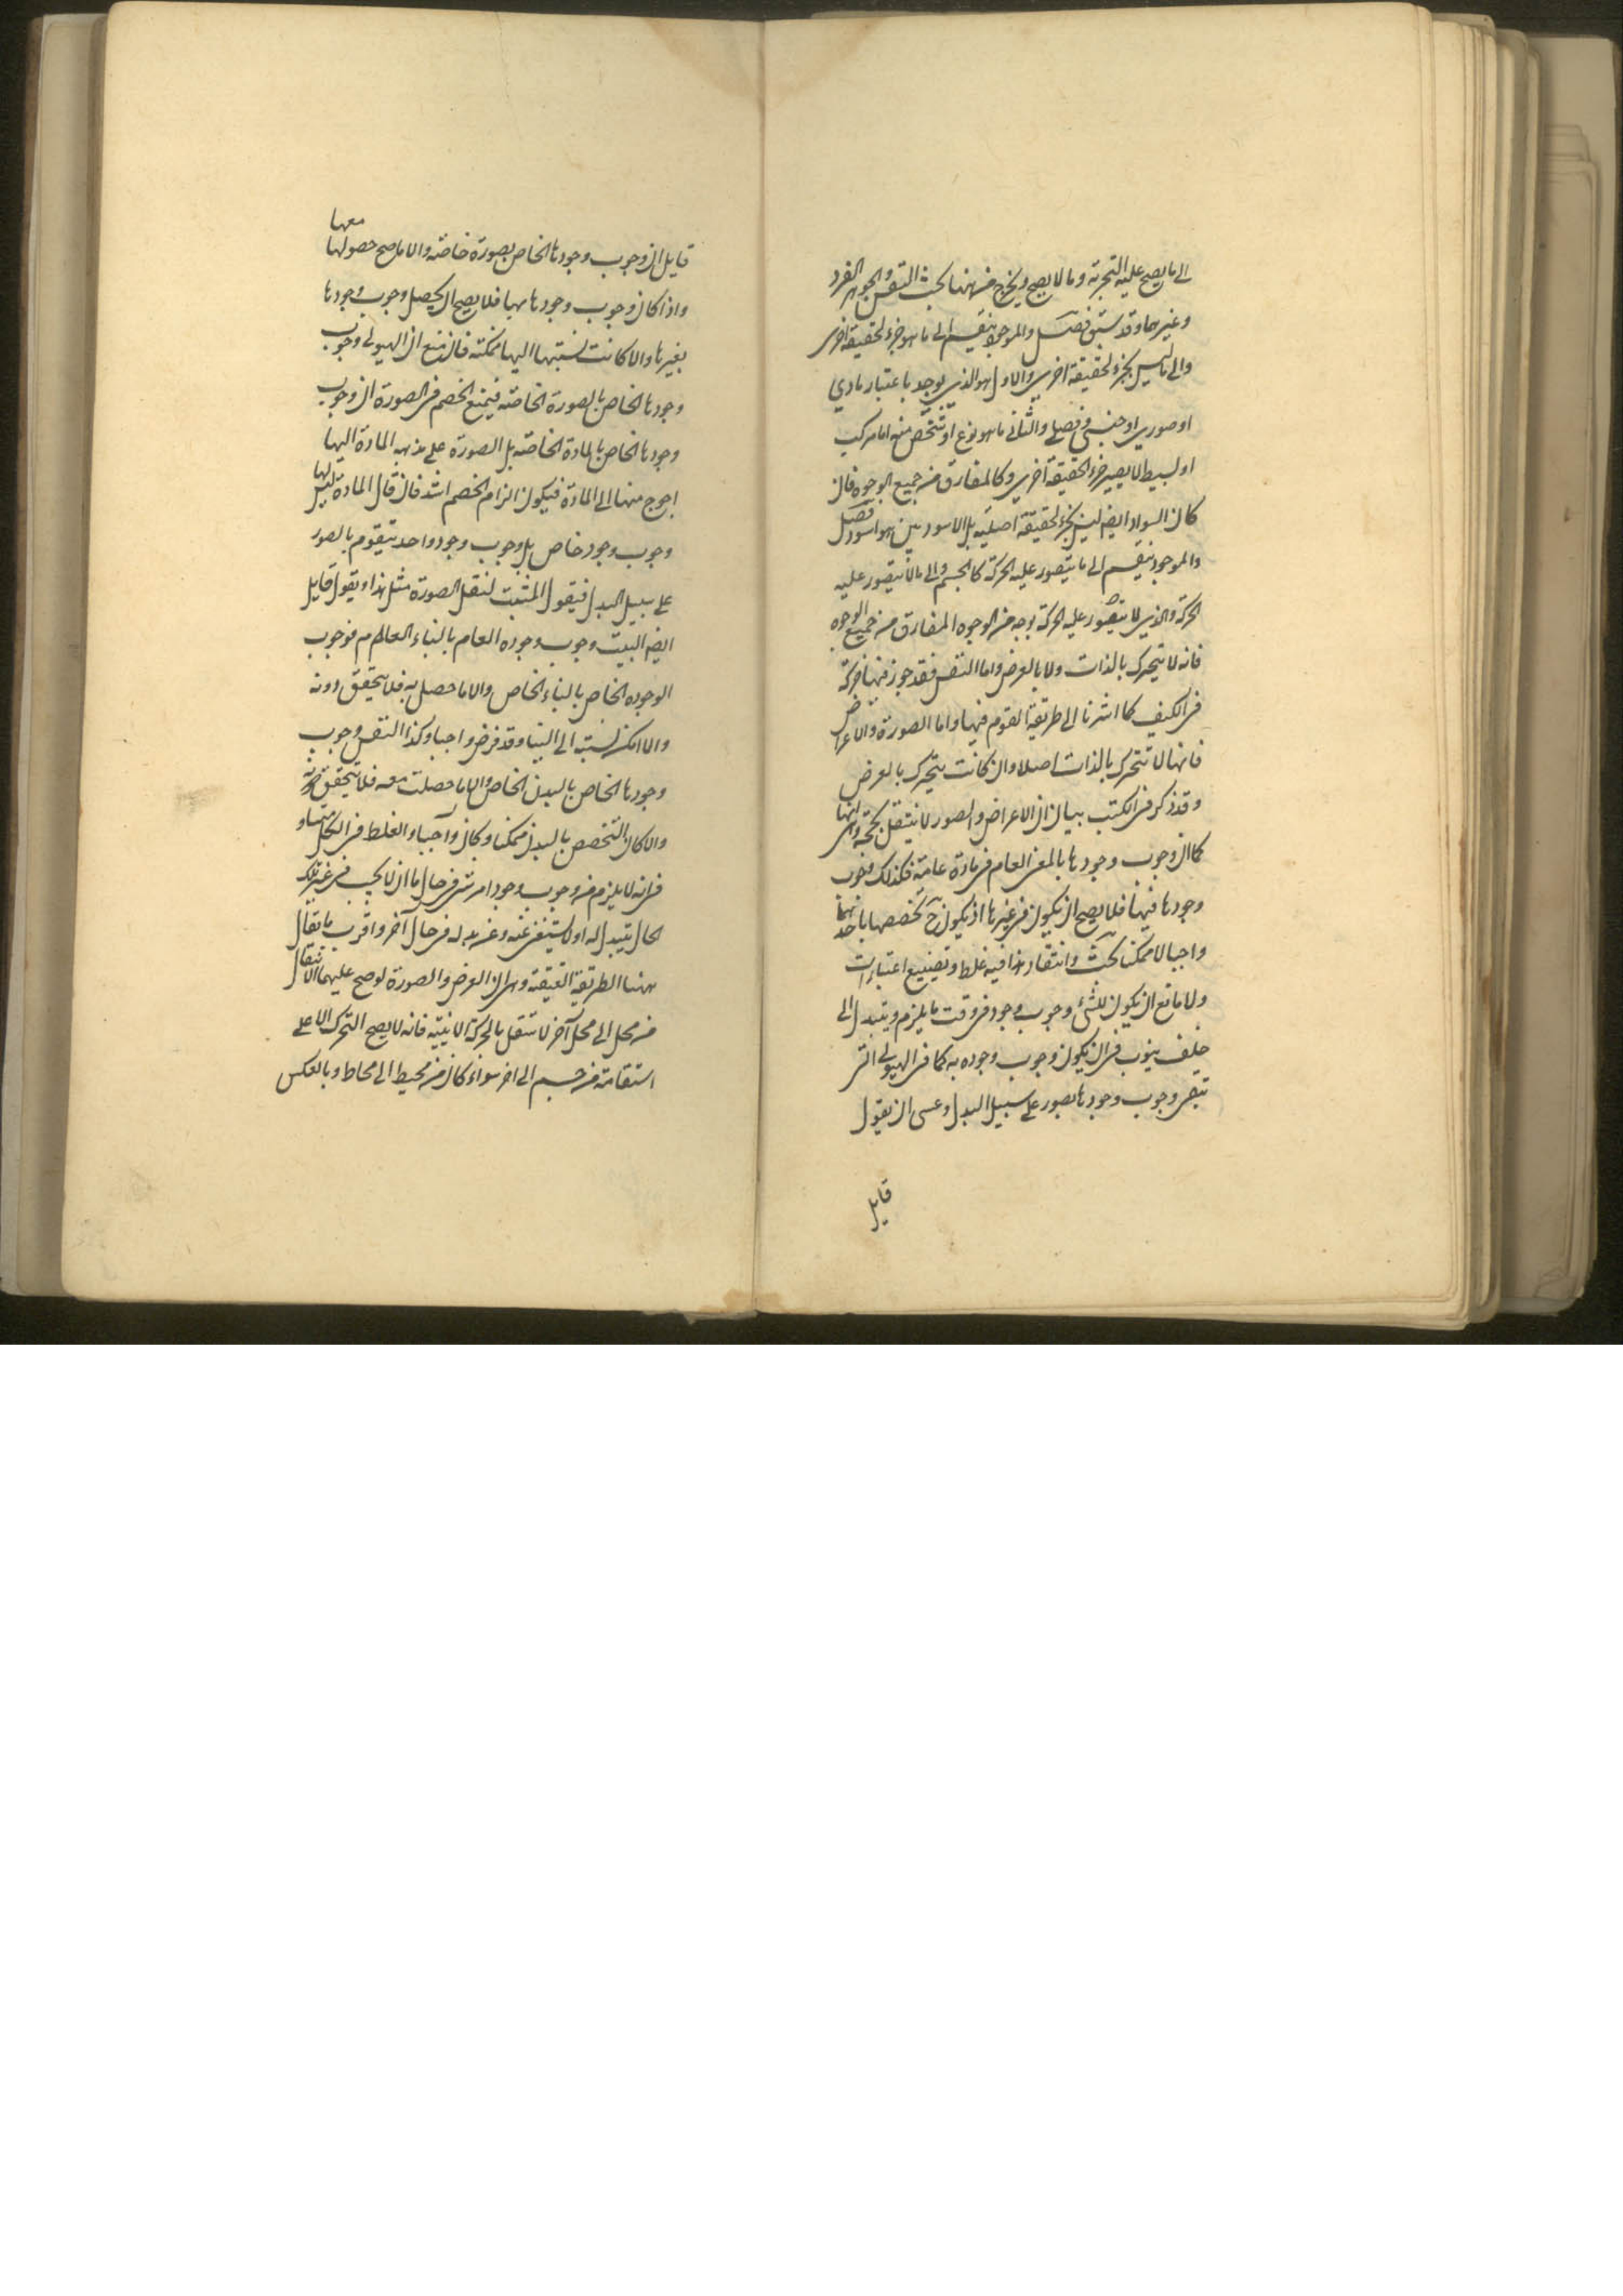 الى ما يصح عليه التجزية وما لا يصح ويخرج من هنا بحث النفس والجوهر الفرد
وغيرهما وقد سبق فصل والموجود ينقسم الى ما هو جزء لحقيقة اخرى
والى ما ليس بجزء لحقيقة اخرى والاول هو الذي يوجد باعتبار مادي
او صوري او جنسي وفصلي والثاني ما هو نوع او شخص منه اما مركب
او بسيط لا يصير جزء لحقيقة اخرى وكالمفارق من جميع الوجوه فان
كان السواد ايضا ليس بجزء لحقيقة اصلية بل الاسود بين هو اسود فصل
والموجود ينقسم الى ما يتصور عليه الحركة كالجسم والى ما لا يتصور عليه
الحركة والذي لا يتصور عليه الحركة بوجه من الوجوه المفارق من جميع الوجوه
فانه لا يتحرك بالذات ولا بالعرض واما النفس فقد جوز فيها حركة
في الكيف كما اشرنا الى طريقة القوم فيها واما الصورة والاعراض
فانها لا تتحرك بالذات اصلا وان كانت يتحرك بالعرض
وقد ذكر في الكتب بيان ان الاعراض والصور لا ينتقل بحجة وهى انها
كما ان وجوب وجودها بالمعنى العام في مادة عامة فكذلك وجوب
وجودها فيها فلا يصح ان يكون في غيرها اذ يكون ح تخصصها باحدهما
واجبا لا ممكنا بحث وانتقاد هذا فيه غلط وتضييع اعتبارات
ولا مانع ان يكون للشئ وجوب وجود في وقت ما يلزم ويتبدل الى
خلف ينوب في ان يكون وجوب وجوده به كما في الهيولى التي
تبقى وجوب وجودها بصور على سبيل البدل وعسى ان يقول
قايل
قايل ان وجوب وجودها الخاص بصورة خاصة والا ما صح حصولها معها
واذا كان وجوب وجودها بها فلا يصح ان يحصل وجوب وجودها
بغيرها والا كانت نسبتها اليها ممكنة فان منع ان الهيولى وجوب
وجودها الخاص بالصورة الخاصة فيمنع الخصم في الصورة ان وجوب
وجودها الخاص بالمادة الخاصة بل الصورة على مذهبه المادة اليها
احوج منها الى المادة فيكون الزام الخصم اشد فان قال المادة ليس لها
وجوب وجود خاص بل وجوب وجود واحد يتقوم بالصور
على سبيل البدل فيقول المثبت لنقل الصورة مثل هذا ويقول قايل
ايضا البيت وجوب وجوده العام بالبناء العام فوجوب
الوجوده الخاص بالبناء الخاص والا ما حصل به فلا يتحقق دونه
والا امكن نسبته الى البنا وقد فرض واجبا وكذا النفس وجوب
وجودها الخاص بالبدن الخاص والا ما حصلت معه فلا يتحقق دونه
والا كان التخصص بالبدن ممكنا وكان واجبا والغلط في الكل متساو
في انه لا يلزم من وجوب وجود امر شئ في حال ما ان لا يجب في غير تلك
الحال يتبدل له او يستغنى عنه وعن بدله في حال آخر واقرب ما يقال
ههنا الطريقة العتيقة وهى ان العرض والصورة لو صح عليهما الانتقال
من محل الى محل آخر لا تنتقل بالحركة الاينية فانه لا يصح التحرك الا على
استقامة من جسم الى اخر سواء كان من محيط الى محاط وبالعكس